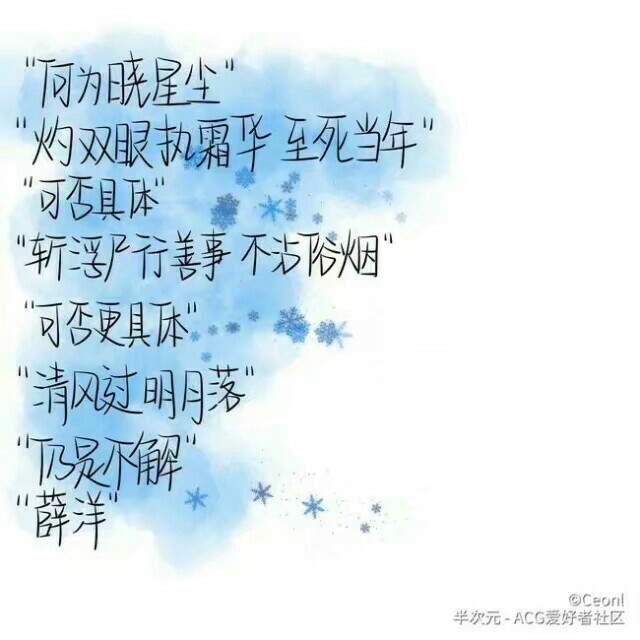 "何为晓星尘"
"灼双眼执霜华 至死当年"
"可否具体"
"斩浮尸行善事 不沾俗烟"
"可否更具体"
"清风过明月落"
"仍是不解"
"薛洋"
©Ceonl
半次元 - ACG爱好者社区